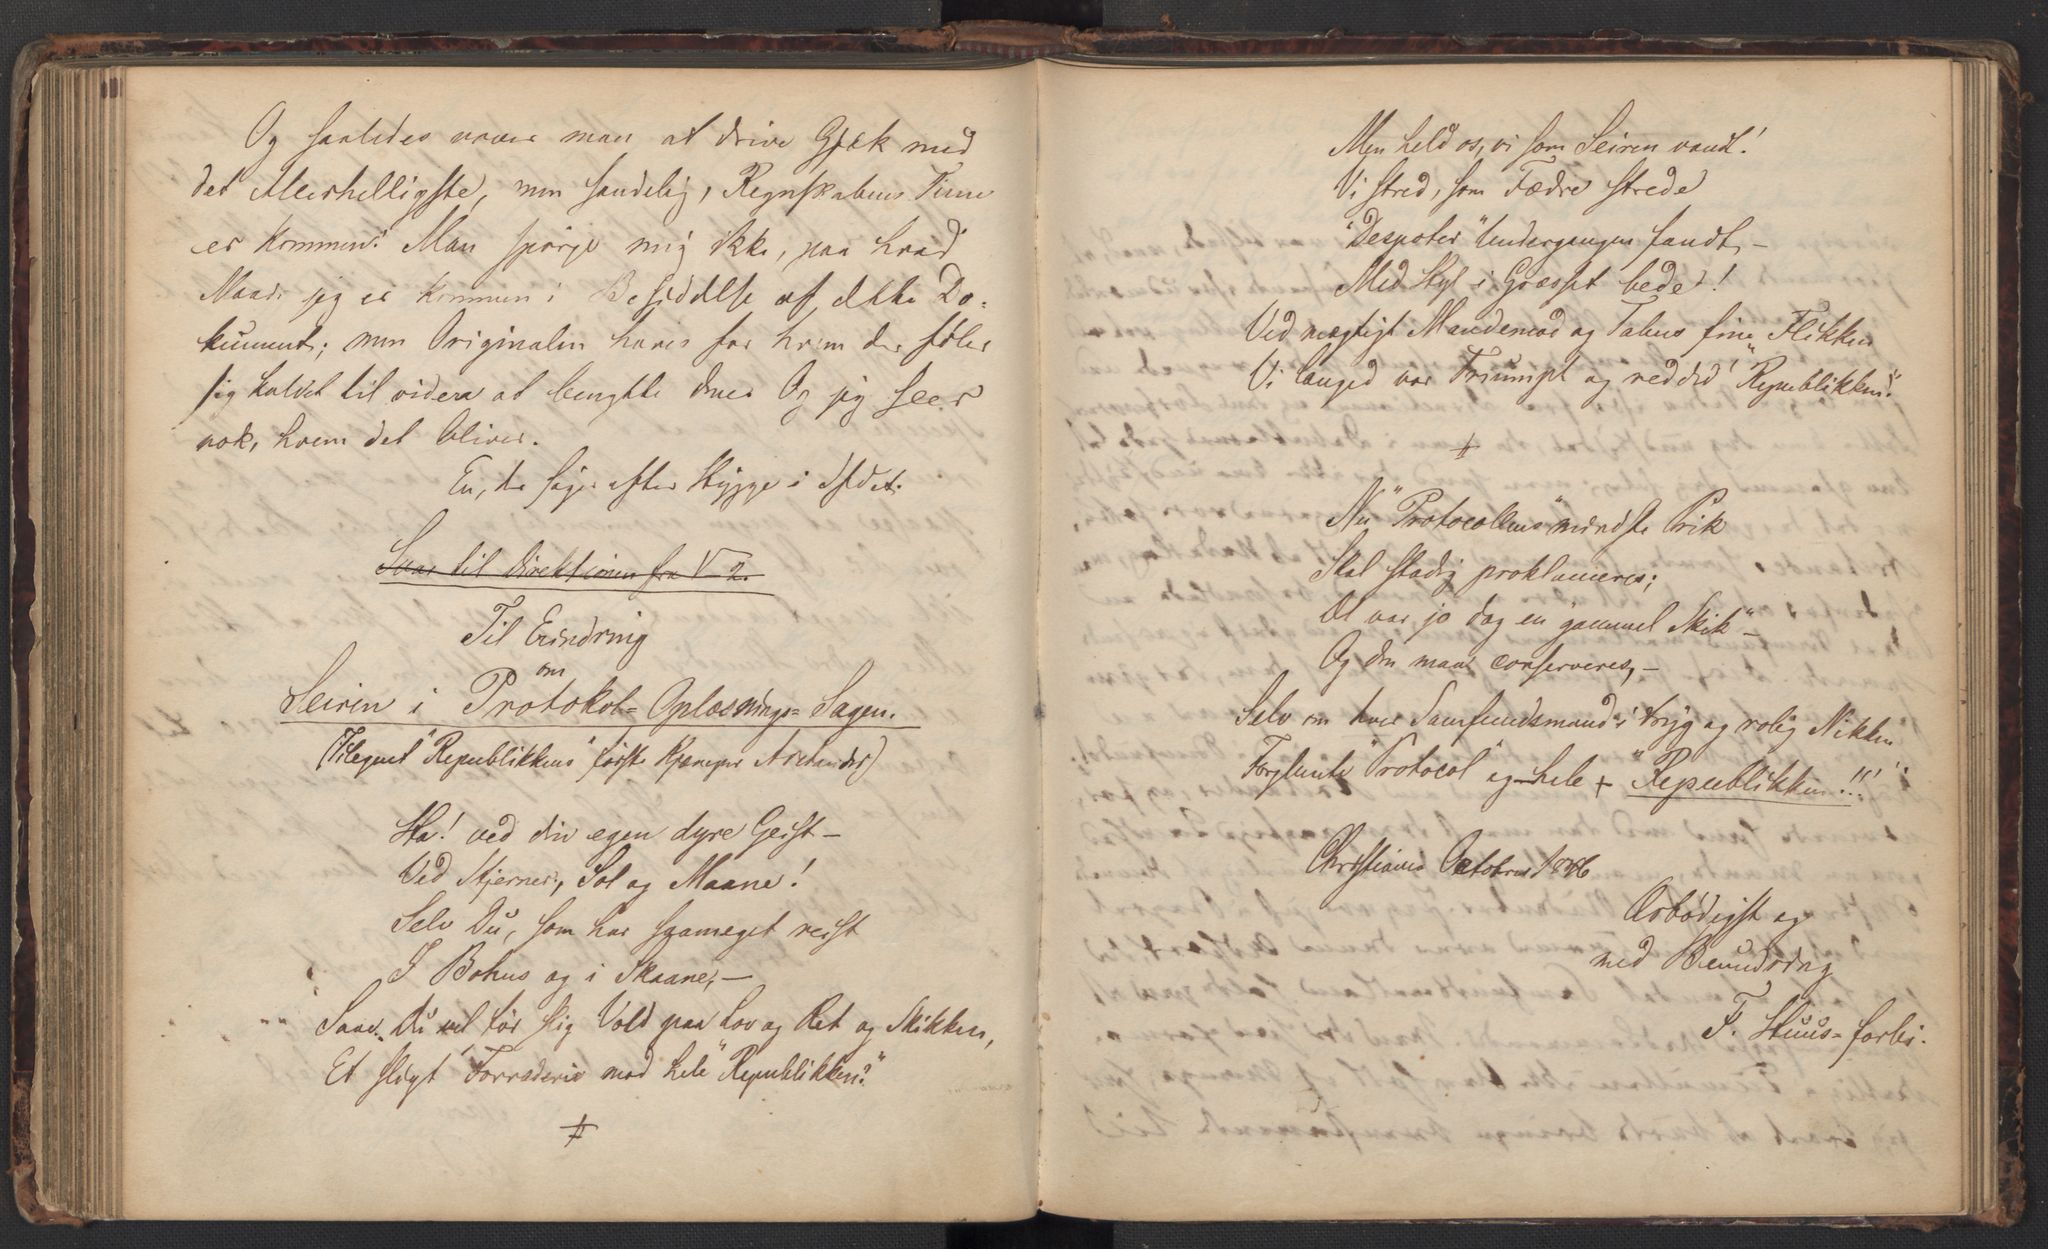 Og saaledes vover man at drive Gjæk med
det Allerhelligste, men sandelig, Regnskabens Time
er kommen! Man spørge mig ikke, paa hvad
Maade jeg er kommen i Besiddelse af dette Do-
kument; men Originalen haves for hvem der føler
sig kaldet til videre at benytte den. Og jeg seer
nok, hvem det bliver.
En, der søger efter Hygge i Asylet.
Svar til Direktionen fra V-2.
Til Erindring
om
Seiren i Protokol-Oplæsnings-Sagen.
(Tilegnet "Republikkens" første Kjæmper Arctander)
Ha! ved din egen dyre Geist –
Ved Stjerner, Sol og Maane!
Selv Du, som har saameget reist
I Bohus og i Skaane, –
Saae Du vel før slig Vold paa Lov og Ret og Skikken,
Et sligt Forræderie mod hele "Republikken?"
#
Men held os, vi som Seiren vandt!
Vi stred, som Fædre strede
"Despoter" Undergangen fandt, –
Med Hyl i Græsset bede!
Ved mægtigt Mandemod og Talens fine Flikken
Vi vor Triumph og redded' "Republikken."
#
Nu "Protocollens" mindste Prik
Skal stadig proklameres;
Det var jo dog en "gammel Skik" –
Og den maa conserveres, –
Selv om hver Samfundsmand i tryg og rolig Nikken
Forglemte "Protocol" og hele + "Republikken!!!"
Christiania October 1846
Ærbødigst og
med Beundring
F. Huus-forbi.